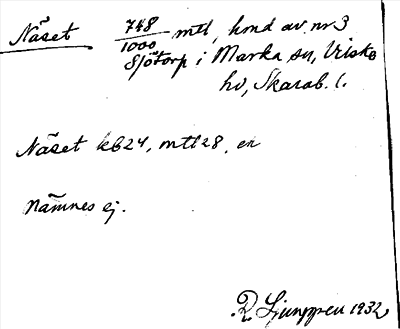 Näset 748/1000 mtl, hmd av nr 3
Sjötorp i Marka sn, Vilske
hd, Skarab. l.
Näset kb 24, mtl 28, en
nämnes ej.
R. Ljunggren 1932